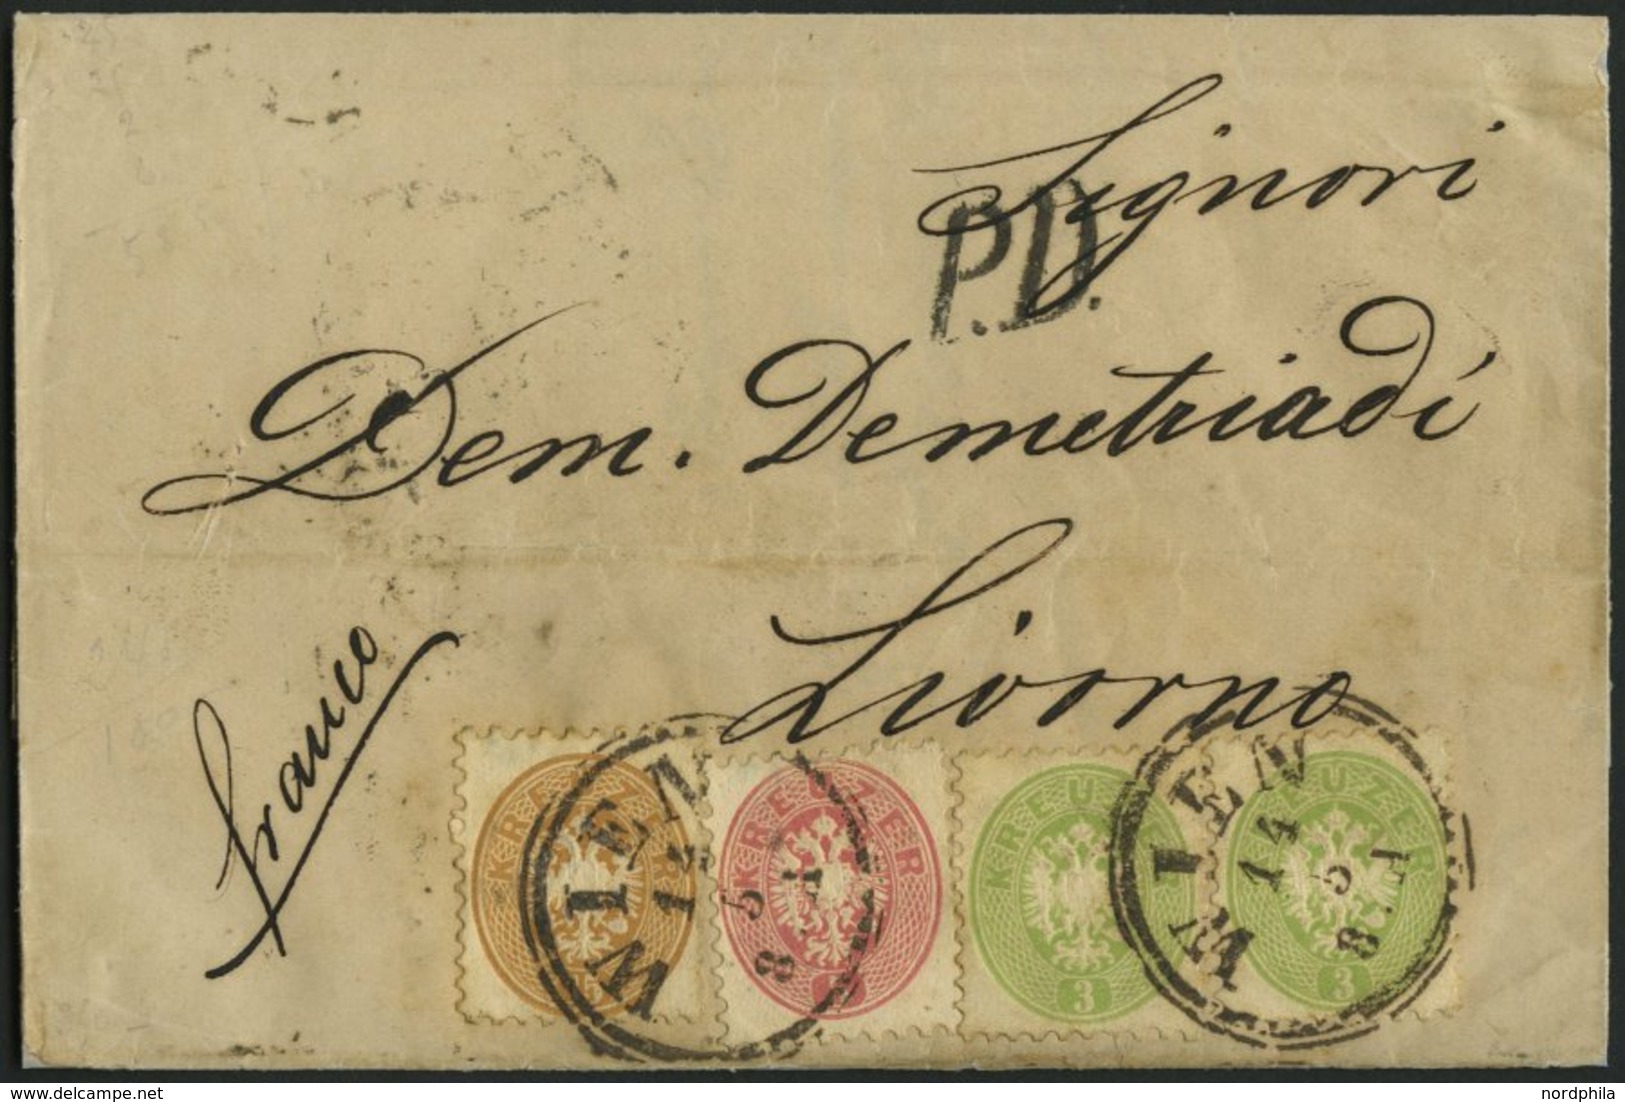 Signori
P.D.
Dem. Demetriadi
Livorno
franco
KREUZER
KREUZER
5
KREUZER
3
KREUZER
3
WIEN
14
5
8.A
WIEN
14
5
8.A
delcampe.net
nordphila